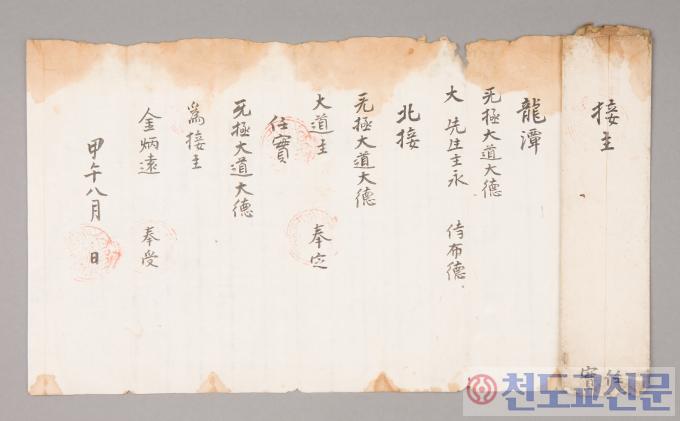 接主
龍潭
无極大道大德
大先生主永 侍布德
北接
无極大道大德
大道主 奉定
任實
无極大道大德
爲接主
金炳遠 奉受
甲午八月 日
천도교신문